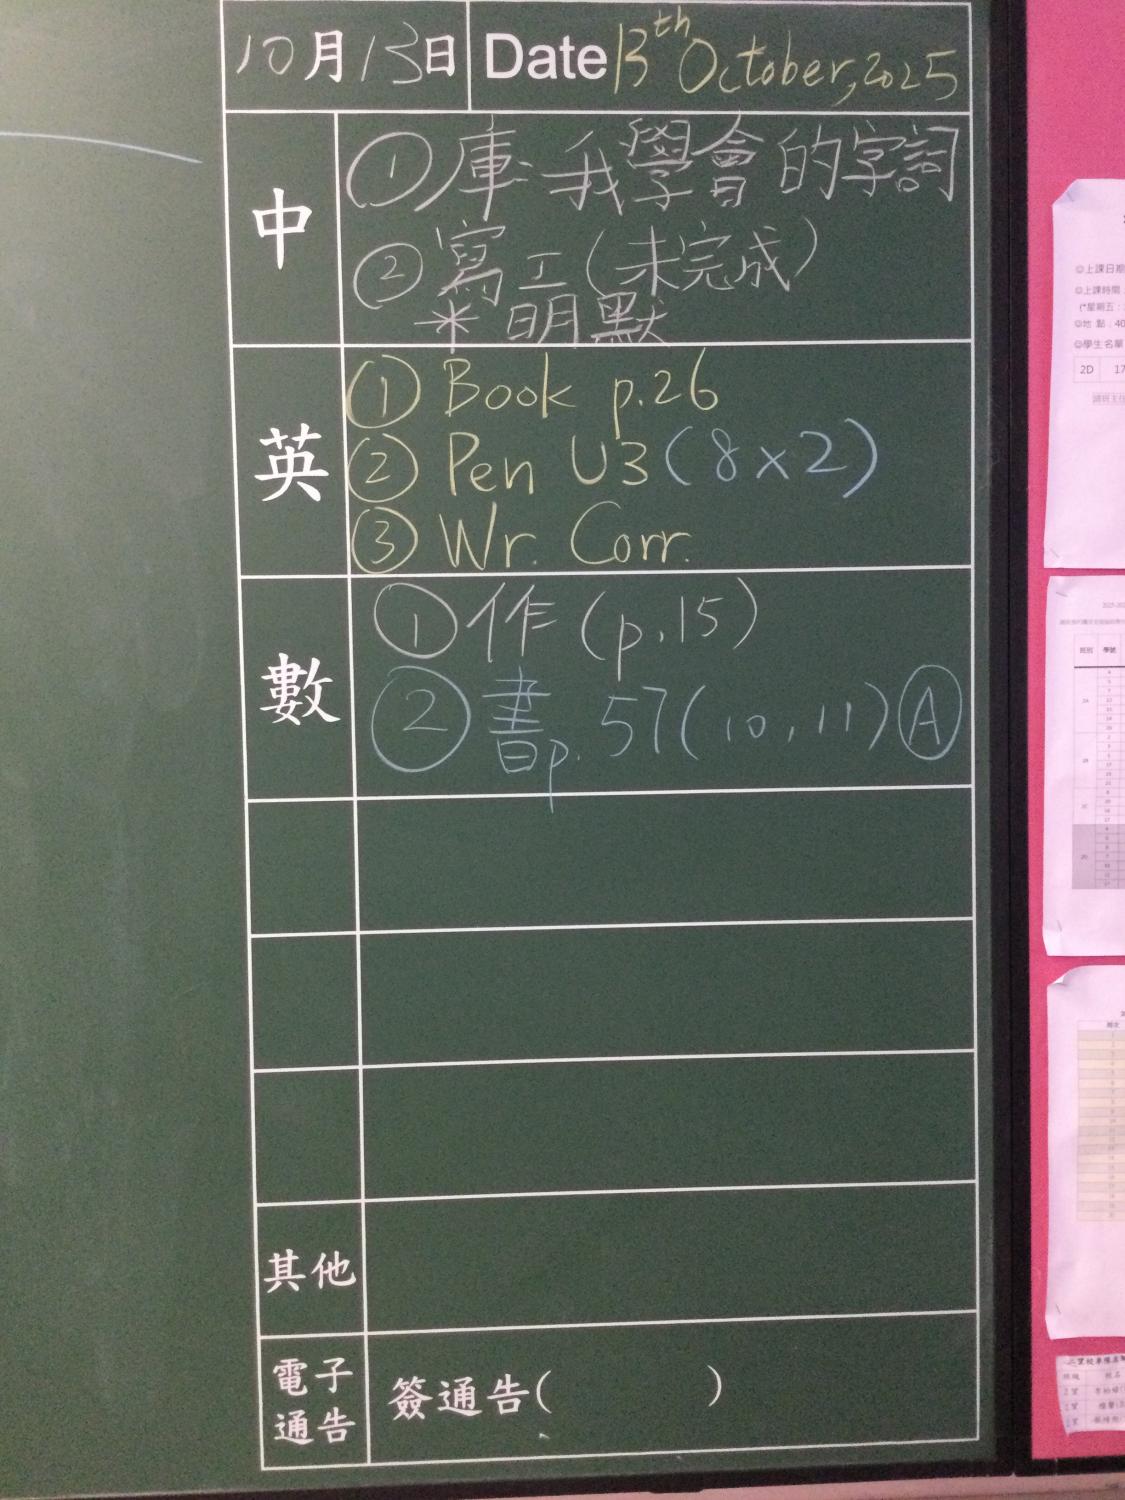 10月13日 Date 13th October, 2025
中
① 庫: 我學會的字詞
② 寫工(未完成)
* 明默
英
① Book p.26
② Pen U3 (8x2)
③ Wr. Corr.
數
① 作 (p.15)
② 書p. 57(10, 11) Ⓐ
其他
電子
通告
簽通告( )
☺上課日期
☺上課時間
(*星期五:
☺地 點:40
☺學生名單
2D 17
班別 學號